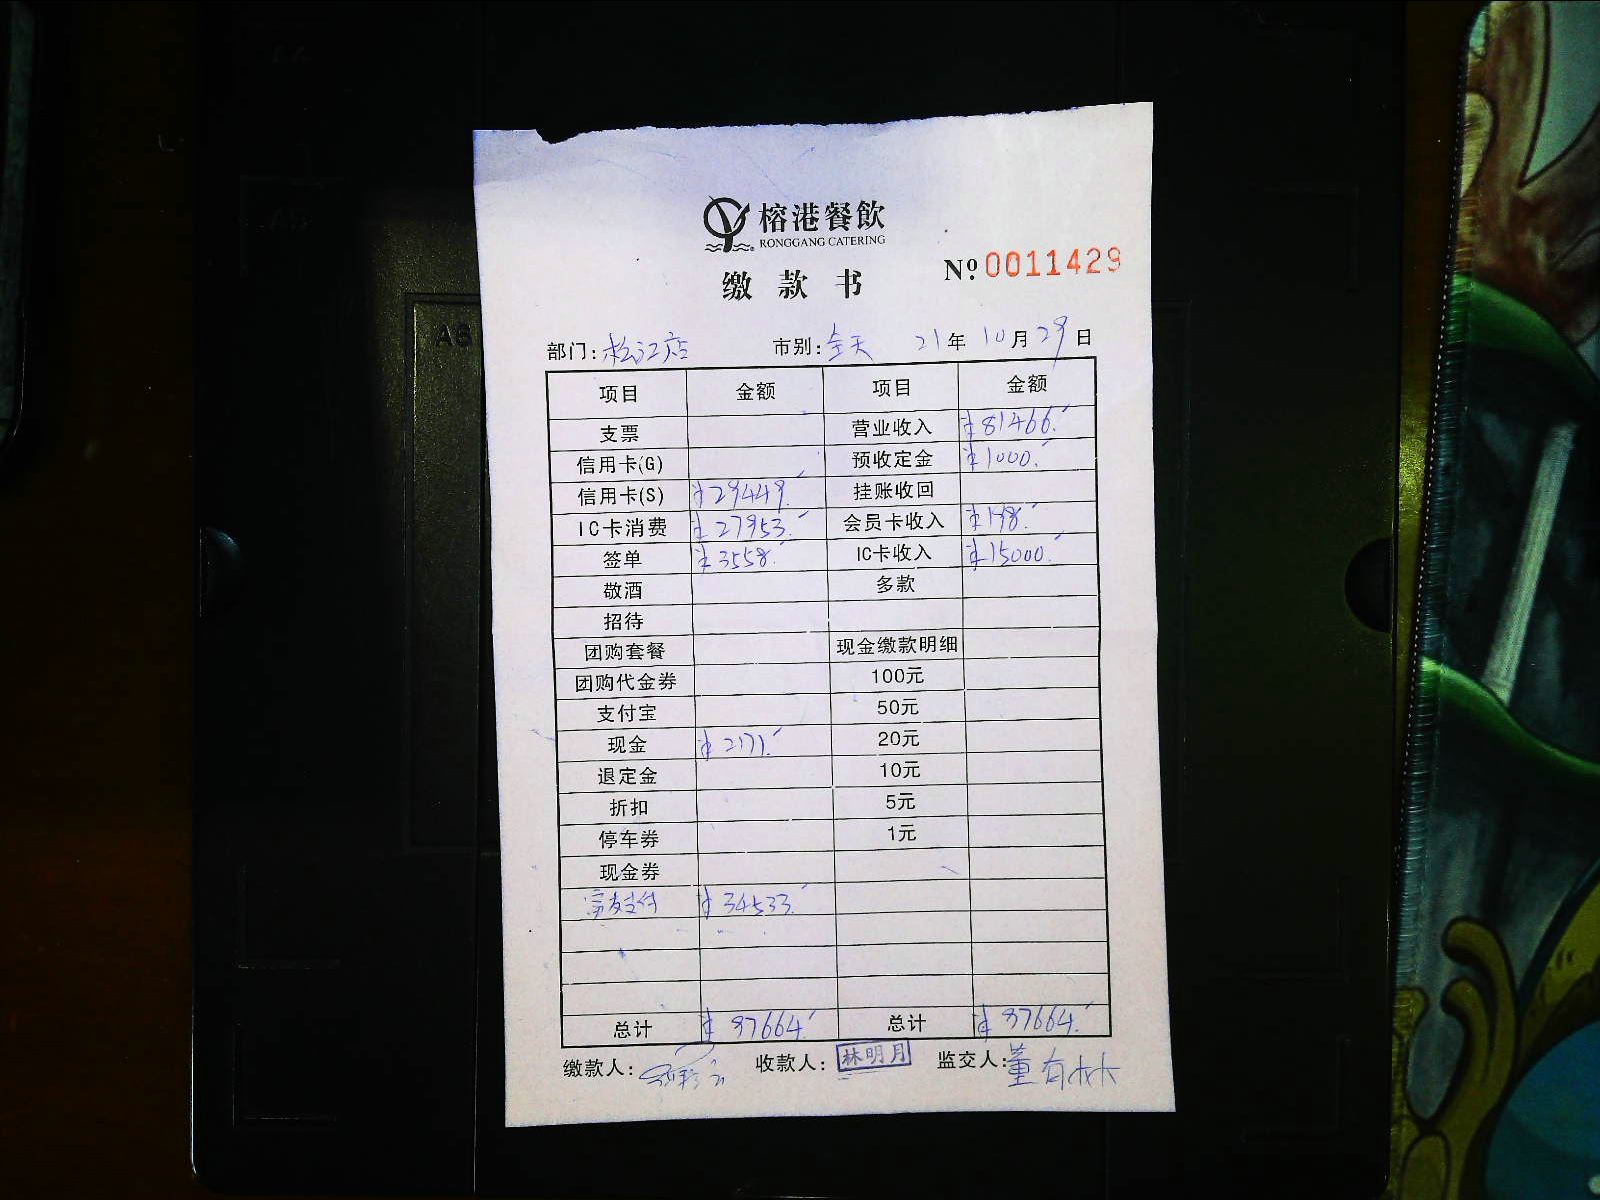 榕港餐飲
RONGGANG CATERING
缴款书
Nº 0011429
部门: 松江店 市别: 全天 21年 10月 29日
项目 金额 项目 金额
支票 营业收入 ¥81466.
信用卡(G) 预收定金 ¥1000.
信用卡(S) ¥29449. 挂账收回
IC卡消费 ¥27953. 会员卡收入 ¥198.
签单 ¥3558. IC卡收入 ¥15000.
敬酒 多款
招待
团购套餐 现金缴款明细
团购代金券 100元
支付宝 50元
现金 ¥2171. 20元
退定金 10元
折扣 5元
停车券 1元
现金券
富友支付 ¥34533.
总计 ¥97664. 总计 ¥97664.
缴款人: 收款人: 林明月 监交人: 董有林
A6
A5